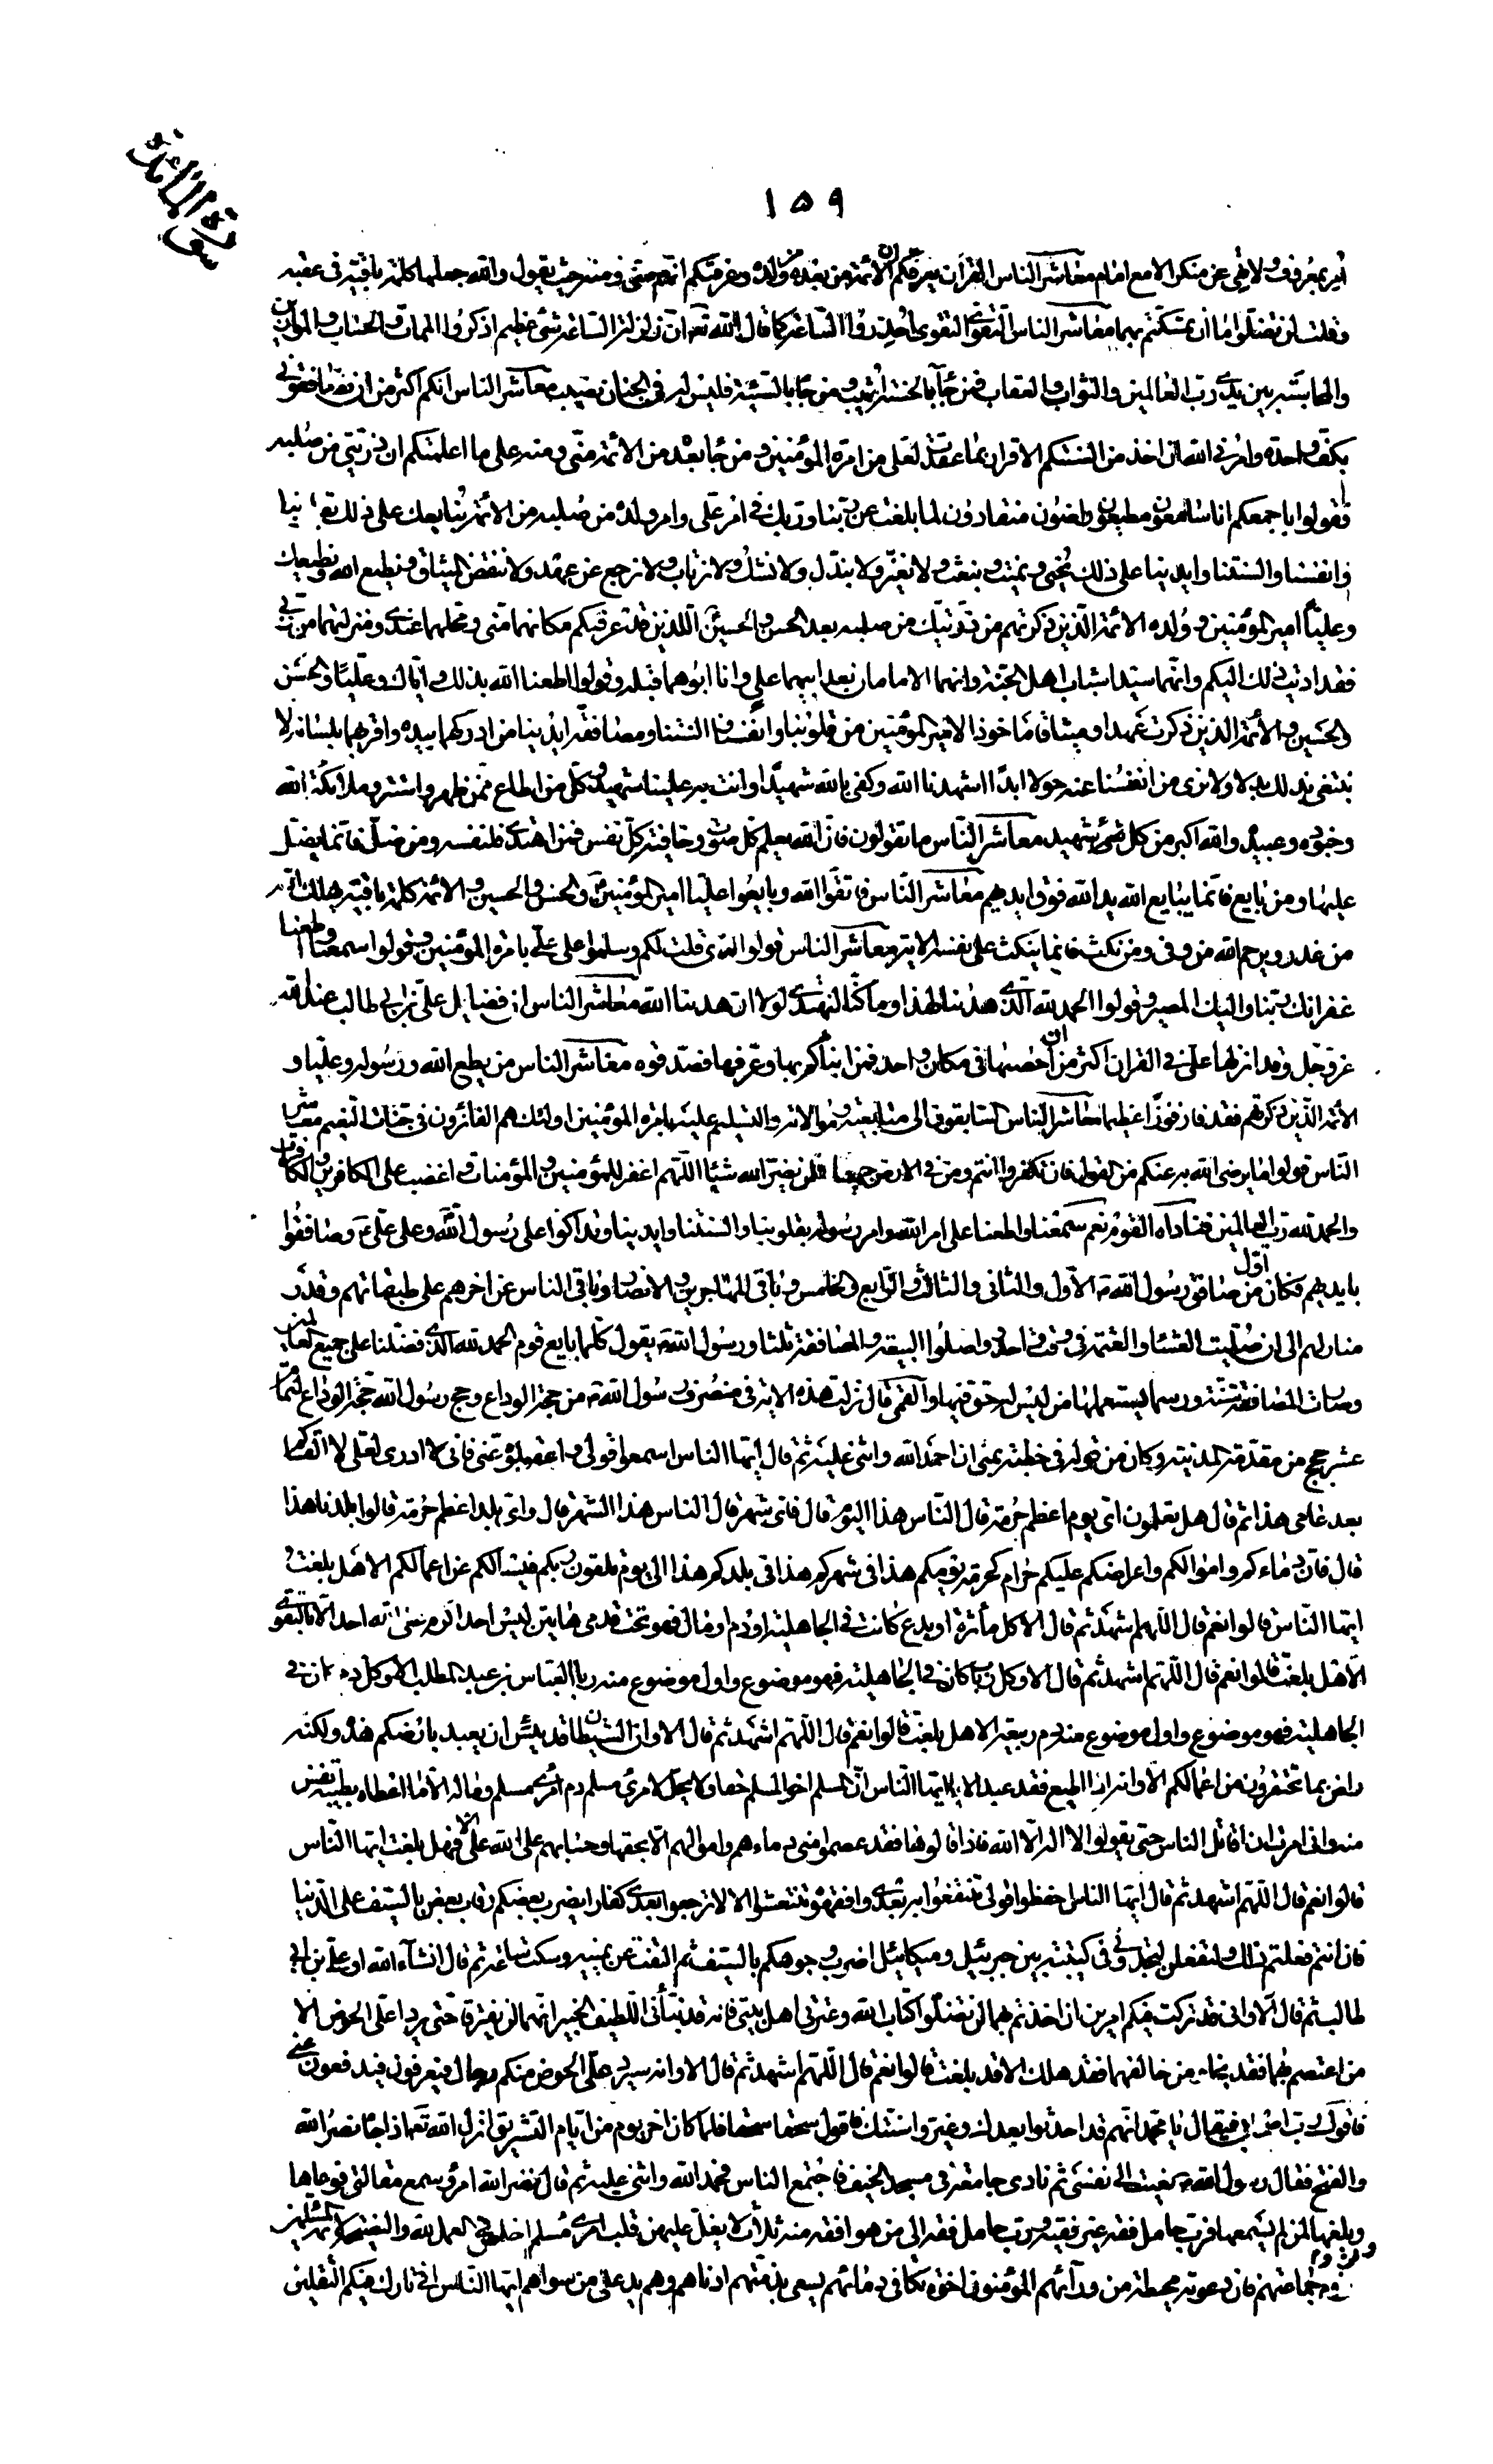 سورة المائدة
١٥٩
امر بمعروف ولا نهى عن منكر الا مع امام معاشر الناس القرآن يعرفكم ان الائمة من بعده ولده وعرفتكم انهم منى ومنه حيث يقول والله جعلها كلمة باقية فى عقبه
وقلت لن تضلوا ما ان تمسكتم بهما معاشر الناس التقوى التقوى احذروا الساعة كما قال الله تعالى ان زلزلة الساعة شئ عظيم اذكروا الممات والحساب والموازين
والمحاسبة بين يدى رب العالمين والثواب والعقاب فمن جآء بالحسنة اثيب ومن جاء بالسيئة فليس له فى الجنان نصيب معاشر الناس انكم اكثر من ان تصافقونى
بكف واحدة وامرنى الله ان اخذ من السنتكم الاقرار بما عقدت لعلى من امرة المؤمنين ومن جاء بعده من الائمة منى ومنه على ما اعلمتكم ان ذريتى من صلبه
فقولوا باجمعكم انا سامعون مطيعون راضون منقادون لما بلغت عن ربنا وربك فى امر على وامر ولده من صلبه من الائمة نبايعك على ذلك بقلوبنا
وانفسنا والسنتنا وايدينا على ذلك نحيى ونميت ونبعث ولا نغير ولا نبدل ولا نشك ولا نرتاب ولا نرجع عن عهد ولا ننقض الميثاق ونطيع الله ونطيعك
وعليا امير المؤمنين وولده الائمة الذين ذكرتهم من ذريتك من صلبه بعد الحسن والحسين اللذين قد عرفتكم مكانهما منى ومحلهما عندى ومنزلتهما من ربى
فقد اديت ذلك اليكم وانهما سيدا شباب اهل الجنة وانهما الامامان بعد ابيهما على وانا ابوهما قبله وقولوا اطعنا الله بذلك واياك وعليا والحسن
والحسين والائمة الذين ذكرت عهدا وميثاقا ماخوذا لامير المؤمنين من قلوبنا وانفسنا والسنتنا ومصافقة ايدينا من ادركهما بيده واقر بهما بلسانه لا
نبتغى بذلك بدلا ولا نرى من انفسنا عنه حولا ابدا اشهدنا الله وكفى بالله شهيدا وانت به علينا شهيد وكل من اطاع ممن ظهر واستتر وملائكة الله
وجنوده وعبيده والله اكبر من كل شئ شهيد معاشر الناس ما تقولون فان الله يعلم كل صوت وخافية كل نفس فمن اهتدى فلنفسه ومن ضل فانما يضل
عليها ومن بايع فانما يبايع الله يد الله فوق ايديهم معاشر الناس فاتقوا الله وبايعوا عليا امير المؤمنين والحسن والحسين والائمة كلمة باقية يهلك الله
من غدر ويرحم الله من وفى ومن نكث فانما ينكث على نفسه الاية معاشر الناس قولوا الذى قلت لكم وسلموا على على بامرة المؤمنين وقولوا سمعنا واطعنا
غفرانك ربنا واليك المصير وقولوا الحمد لله الذى هدينا لهذا وما كنا لنهتدى لولا ان هدينا الله معاشر الناس ان فضايل على بن ابى طالب عند الله
عز وجل وقد انزلها على فى القرآن اكثر من ان احصيها فى مكان واحد فمن انبأكم بها وعرفها فصدقوه معاشر الناس من يطع الله ورسوله وعليا و
الائمة الذين ذكرتهم فقد فاز فوزا عظيما معاشر الناس السابقون الى متابعته وموالاته والتسليم عليه بامرة المؤمنين اولئك هم الفائزون فى جنات النعيم معاشر
الناس قولوا ما يرضى الله به عنكم من القول فان تكفروا انتم ومن فى الارض جميعا فلن نضر الله شيئا اللهم اغفر للمؤمنين والمؤمنات واغضب على الكافرين والكافرات
والحمد لله رب العالمين فناداه القوم نعم سمعنا واطعنا على امر الله وامر رسوله بقلوبنا والسنتنا وايدينا وتداكوا على رسول الله وعلى على ع وصافقوا
بايديهم فكان اول من صافق رسول الله ص الاول والثانى والثالث والرابع والخامس وباقى المهاجرين والانصار وباقى الناس عن اخرهم على طبقاتهم وقدر
منازلهم الى ان صليت العشاء والعتمة فى وقت واحد وواصلوا البيعة والمصافقة ثلثا ورسول الله ص يقول كلما بايع قوم الحمد لله الذى فضلنا على جميع العالمين
وصارت المصافقة سنة ورسما يستعملها من ليس له حق فيها والقمى قال نزلت هذه الاية فى منصرف رسول الله ص من حجة الوداع وحج رسول الله حجة الوداع لتمام
عشر حجج من مقدمه المدينة وكان من قوله فى خطبته بمنى ان حمد الله واثنى عليه ثم قال ايها الناس اسمعوا قولى واعقلوه عنى فانى لا ادرى لعلى لا القاكم
بعد عامى هذا ثم قال هل تعلمون اى يوم اعظم حرمة قال الناس هذا اليوم قال فاى شهر قال الناس هذا الشهر قال واى بلد اعظم حرمة قالوا بلدنا هذا
قال فان دماءكم واموالكم واعراضكم عليكم حرام كحرمة يومكم هذا فى شهركم هذا فى بلدكم هذا الى يوم تلقون ربكم فيسئلكم عن اعمالكم الا هل بلغت
ايها الناس قالوا نعم قال اللهم اشهد ثم قال الا كل مأثرة او بدع كانت فى الجاهلية او دم او مال فهو تحت قدمى هاتين ليس احد اكرم من احد الا بالتقوى
الا هل بلغت قالوا نعم قال اللهم اشهد ثم قال الا وكل ربا كان فى الجاهلية فهو موضوع واول موضوع منه ربا العباس بن عبد المطلب الا وكل دم كان فى
الجاهلية فهو موضوع واول موضوع منه دم ربيعة الا هل بلغت قالوا نعم قال اللهم اشهد ثم قال الا وان الشيطان قد يئس ان يعبد بارضكم هذه ولكنه
راض بما تحتقرون من اعمالكم الا وانه اذا اطيع فقد عبد الا ايها الناس ان المسلم اخو المسلم حقا ولا يحل لامرئ مسلم دم امرئ مسلم وماله الا ما اعطاه بطيبة نفس
منه وانى امرت ان اقاتل الناس حتى يقولوا لا اله الا الله فاذا قالوها فقد عصموا منى دماءهم واموالهم الا بحقها وحسابهم على الله الا فهل بلغت ايها الناس
قالوا نعم قال اللهم اشهد ثم قال ايها الناس احفظوا قولى تنتفعوا به بعدى وافقهوه تنتعشوا الا لا ترجعوا بعدى كفارا يضرب بعضكم رقاب بعض بالسيف على الدنيا
فان انتم فعلتم ذلك ولتفعلن لتجدونى فى كتيبة بين جبرئيل وميكائيل اضرب وجوهكم بالسيف ثم التفت عن يمينه وسكت ساعة ثم قال انشآء الله او على بن ابى
طالب ثم قال الا وانى قد تركت فيكم امرين ان اخذتم بهما لن تضلوا كتاب الله وعترتى اهل بيتى فانه قد نبأنى اللطيف الخبير انهما لن يفترقا حتى يردا على الحوض الا
من اعتصم بهما فقد نجا ومن خالفهما فقد هلك الا قد بلغت قالوا نعم قال اللهم اشهد ثم قال الا وانه سيرد على الحوض منكم رجال فيعرفون فيدفعون عنى
فاقول رب اصحابى فيقال يا محمد انهم قد احدثوا بعدك وغيروا سنتك فاقول سحقا سحقا فلما كان اخر يوم من ايام التشريق انزل الله تعالى اذا جاء نصر الله
والفتح فقال رسول الله ص نعيت الى نفسى ثم نادى جامعة فى مسجد الخيف فاجتمع الناس فحمد الله واثنى عليه ثم قال نضر الله امرء سمع مقالتى فوعاها
وبلغها لمن لم يسمعها فرب حامل فقه غير فقيه ورب حامل فقه الى من هو افقه منه ثلاث لا يغل عليهن قلب امرئ مسلم اخلاص العمل لله والنصيحة لائمة المسلمين
ولزوم جماعتهم فان دعوته محيطة من ورآئهم المؤمنون اخوة تكافى دماؤهم يسعى بذمتهم ادناهم وهم يد على من سواهم ايها الناس انى تارك فيكم الثقلين